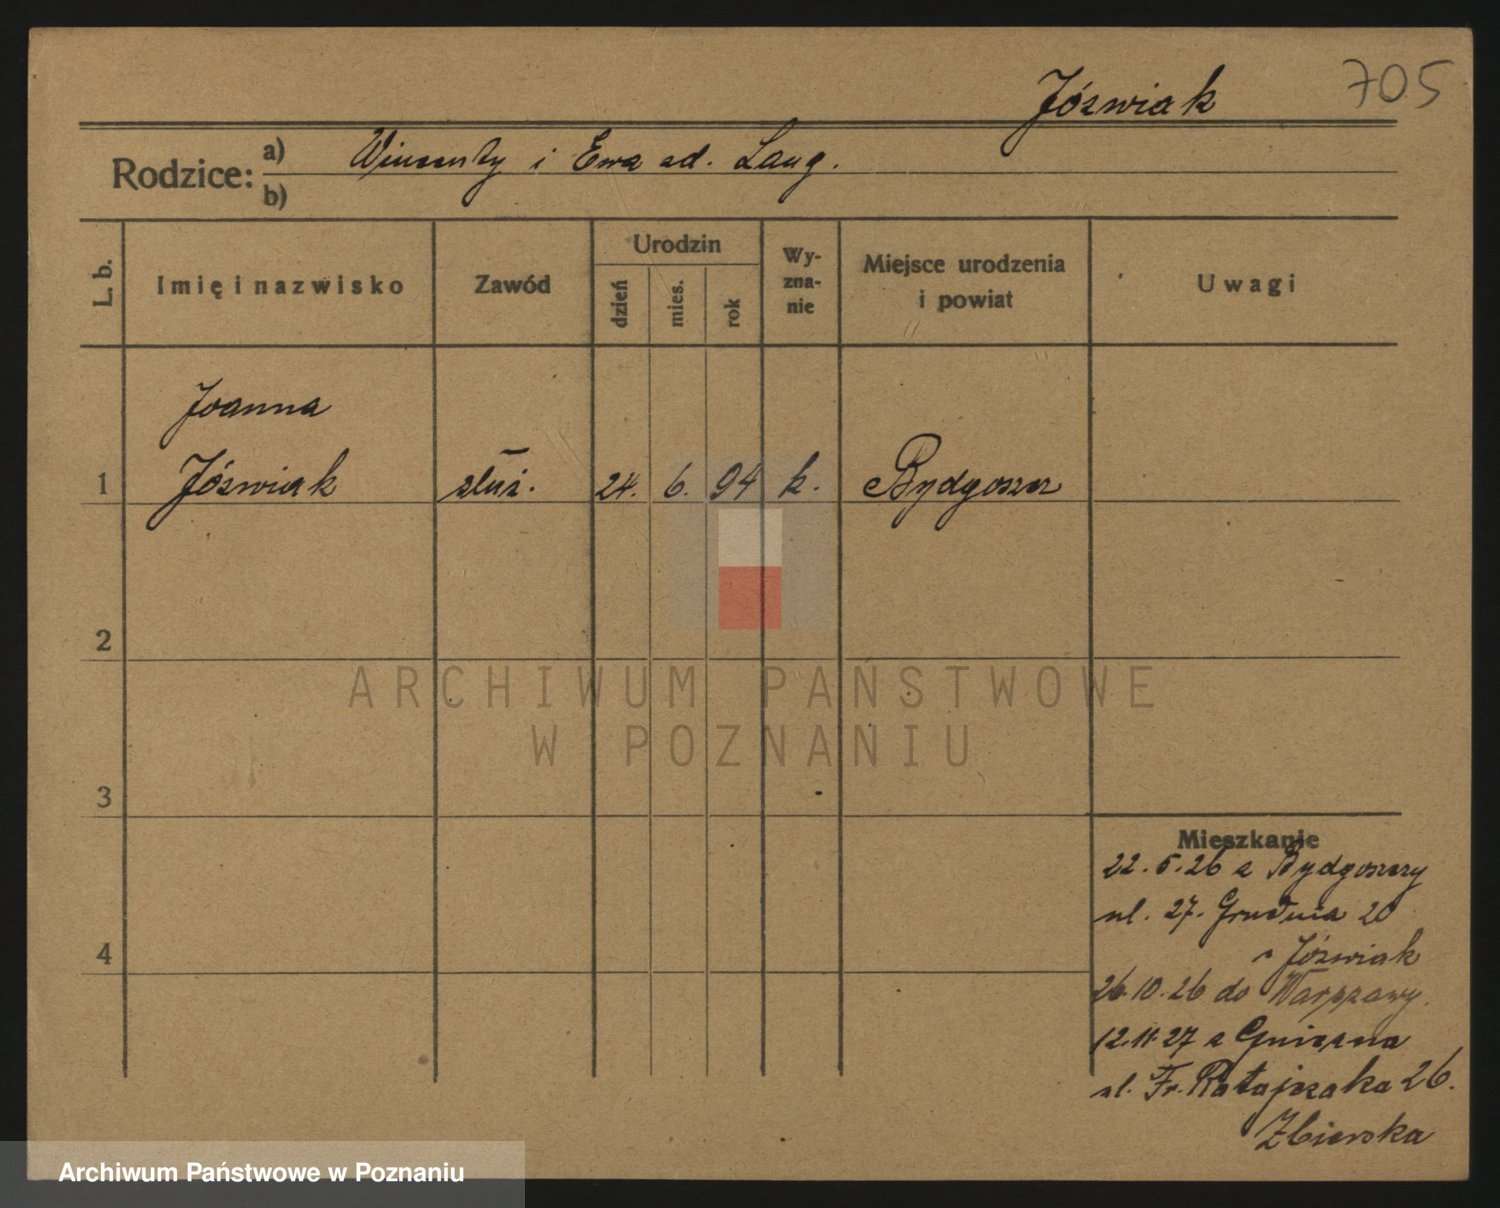 Jóźwiak 705
Rodzice: a) Wincenty i Ewa zd. Lang.
b)
L. b. Imię i nazwisko Zawód Urodzin dzień mies. rok Wy-zna-nie Miejsce urodzenia i powiat Uwagi
Joanna
1 Jóźwiak służ. 24. 6. 94 k. Bydgoszcz
2
ARCHIWUM PAŃSTWOWE
W POZNANIU
3
Mieszkanie
22.5.26 z Bydgoszczy
ul. 27. Grudnia 20
4
Jóźwiak
26.10.26 do Warszawy.
12.11.27 z Gniezna
ul. Fr. Ratajczaka 26.
Zbierska
Archiwum Państwowe w Poznaniu